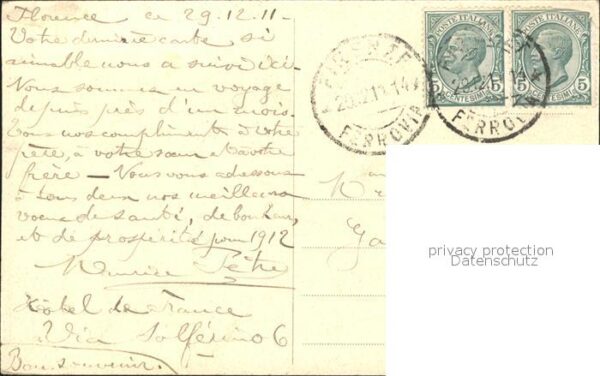 Florence ce 29.12.11.
Votre dernière carte si
aimable nous a suivi ici.
Nous sommes en voyage
depuis près d'un mois.
Tous nos compliments à votre
père, à votre sœur et à votre
frère – Nous vous adressons
à tous deux nos meilleurs
vœux de santé, de bonheur,
et de prospérité pour 1912
Maurice
Hôtel de France
Via Solférino 6
Bon souvenir.
POSTE ITALIANE
5 CENTESIMI 5
POSTE ITALIANE
5 CENTESIMI 5
FIRENZE
FERROVIA
FIRENZE
FERROVIA
privacy protection
Datenschutz